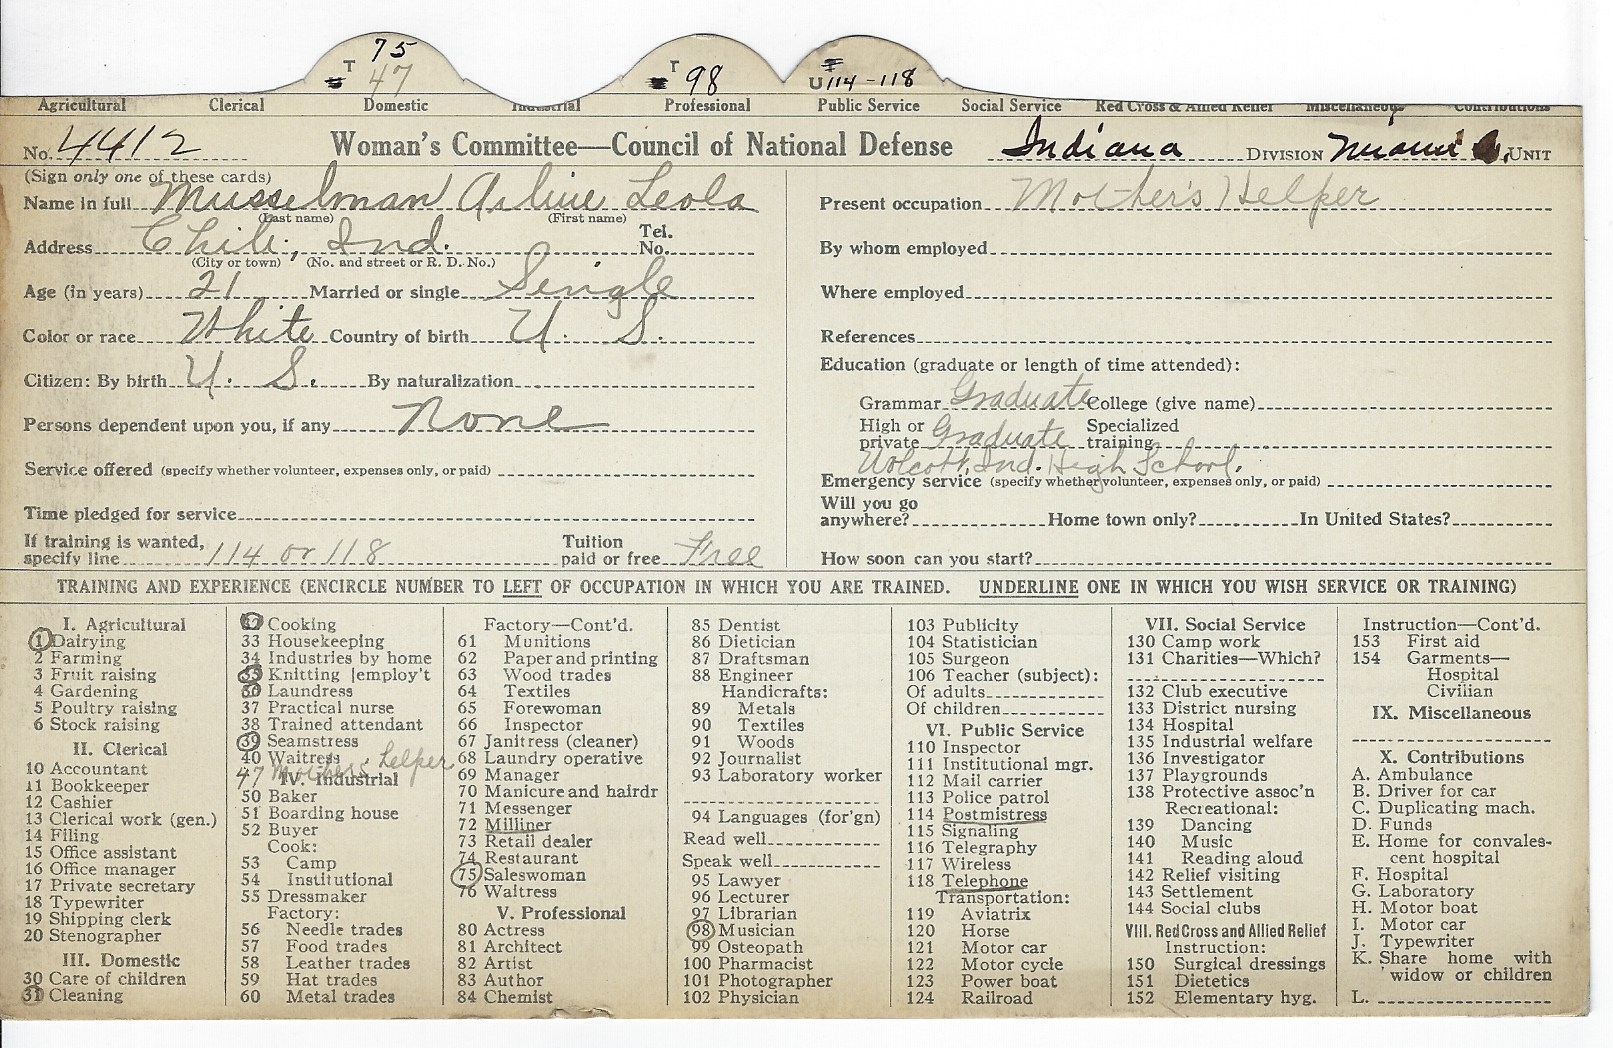 75
T 47
T 98
U 114-118
Agricultural Clerical Domestic Industrial Professional Public Service Social Service Red Cross & Allied Relief Miscellaneous Contributions
No. 4412 Woman's Committee—Council of National Defense Indiana DIVISION Miami UNIT
(Sign only one of these cards)
Name in full Musselman Arline Leola
(Last name) (First name)
Address Chili, Ind. Tel. No.
(City or town) (No. and street or R. D. No.)
Age (in years) 21 Married or single Single
Color or race White Country of birth U. S.
Citizen: By birth U. S. By naturalization
Persons dependent upon you, if any None
Service offered (specify whether volunteer, expenses only, or paid)
Time pledged for service
If training is wanted, specify line 114 or 118 Tuition paid or free Free
Present occupation Mother's Helper
By whom employed
Where employed
References
Education (graduate or length of time attended):
Grammar Graduate College (give name)
High or private Graduate Specialized training
Wolcott, Ind. High School.
Emergency service (specify whether volunteer, expenses only, or paid)
Will you go anywhere? Home town only? In United States?
How soon can you start?
TRAINING AND EXPERIENCE (ENCIRCLE NUMBER TO LEFT OF OCCUPATION IN WHICH YOU ARE TRAINED. UNDERLINE ONE IN WHICH YOU WISH SERVICE OR TRAINING)
I. Agricultural
1 Dairying
2 Farming
3 Fruit raising
4 Gardening
5 Poultry raising
6 Stock raising
II. Clerical
10 Accountant
11 Bookkeeper
12 Cashier
13 Clerical work (gen.)
14 Filing
15 Office assistant
16 Office manager
17 Private secretary
18 Typewriter
19 Shipping clerk
20 Stenographer
III. Domestic
30 Care of children
31 Cleaning
32 Cooking
33 Housekeeping
34 Industries by home
35 Knitting [employ't
36 Laundress
37 Practical nurse
38 Trained attendant
39 Seamstress
40 Waitress
47 Mother's helper
IV. Industrial
50 Baker
51 Boarding house
52 Buyer
Cook:
53 Camp
54 Institutional
55 Dressmaker
Factory:
56 Needle trades
57 Food trades
58 Leather trades
59 Hat trades
60 Metal trades
Factory—Cont'd.
61 Munitions
62 Paper and printing
63 Wood trades
64 Textiles
65 Forewoman
66 Inspector
67 Janitress (cleaner)
68 Laundry operative
69 Manager
70 Manicure and hairdr
71 Messenger
72 Milliner
73 Retail dealer
74 Restaurant
75 Saleswoman
76 Waitress
V. Professional
80 Actress
81 Architect
82 Artist
83 Author
84 Chemist
85 Dentist
86 Dietician
87 Draftsman
88 Engineer
Handicrafts:
89 Metals
90 Textiles
91 Woods
92 Journalist
93 Laboratory worker
94 Languages (for'gn)
Read well
Speak well
95 Lawyer
96 Lecturer
97 Librarian
98 Musician
99 Osteopath
100 Pharmacist
101 Photographer
102 Physician
103 Publicity
104 Statistician
105 Surgeon
106 Teacher (subject):
Of adults
Of children
VI. Public Service
110 Inspector
111 Institutional mgr.
112 Mail carrier
113 Police patrol
114 Postmistress
115 Signaling
116 Telegraphy
117 Wireless
118 Telephone
Transportation:
119 Aviatrix
120 Horse
121 Motor car
122 Motor cycle
123 Power boat
124 Railroad
VII. Social Service
130 Camp work
131 Charities—Which?
132 Club executive
133 District nursing
134 Hospital
135 Industrial welfare
136 Investigator
137 Playgrounds
138 Protective assoc'n
Recreational:
139 Dancing
140 Music
141 Reading aloud
142 Relief visiting
143 Settlement
144 Social clubs
VIII. Red Cross and Allied Relief
Instruction:
150 Surgical dressings
151 Dietetics
152 Elementary hyg.
Instruction—Cont'd.
153 First aid
154 Garments—
Hospital
Civilian
IX. Miscellaneous
X. Contributions
A. Ambulance
B. Driver for car
C. Duplicating mach.
D. Funds
E. Home for convales-
cent hospital
F. Hospital
G. Laboratory
H. Motor boat
I. Motor car
J. Typewriter
K. Share home with
widow or children
L.